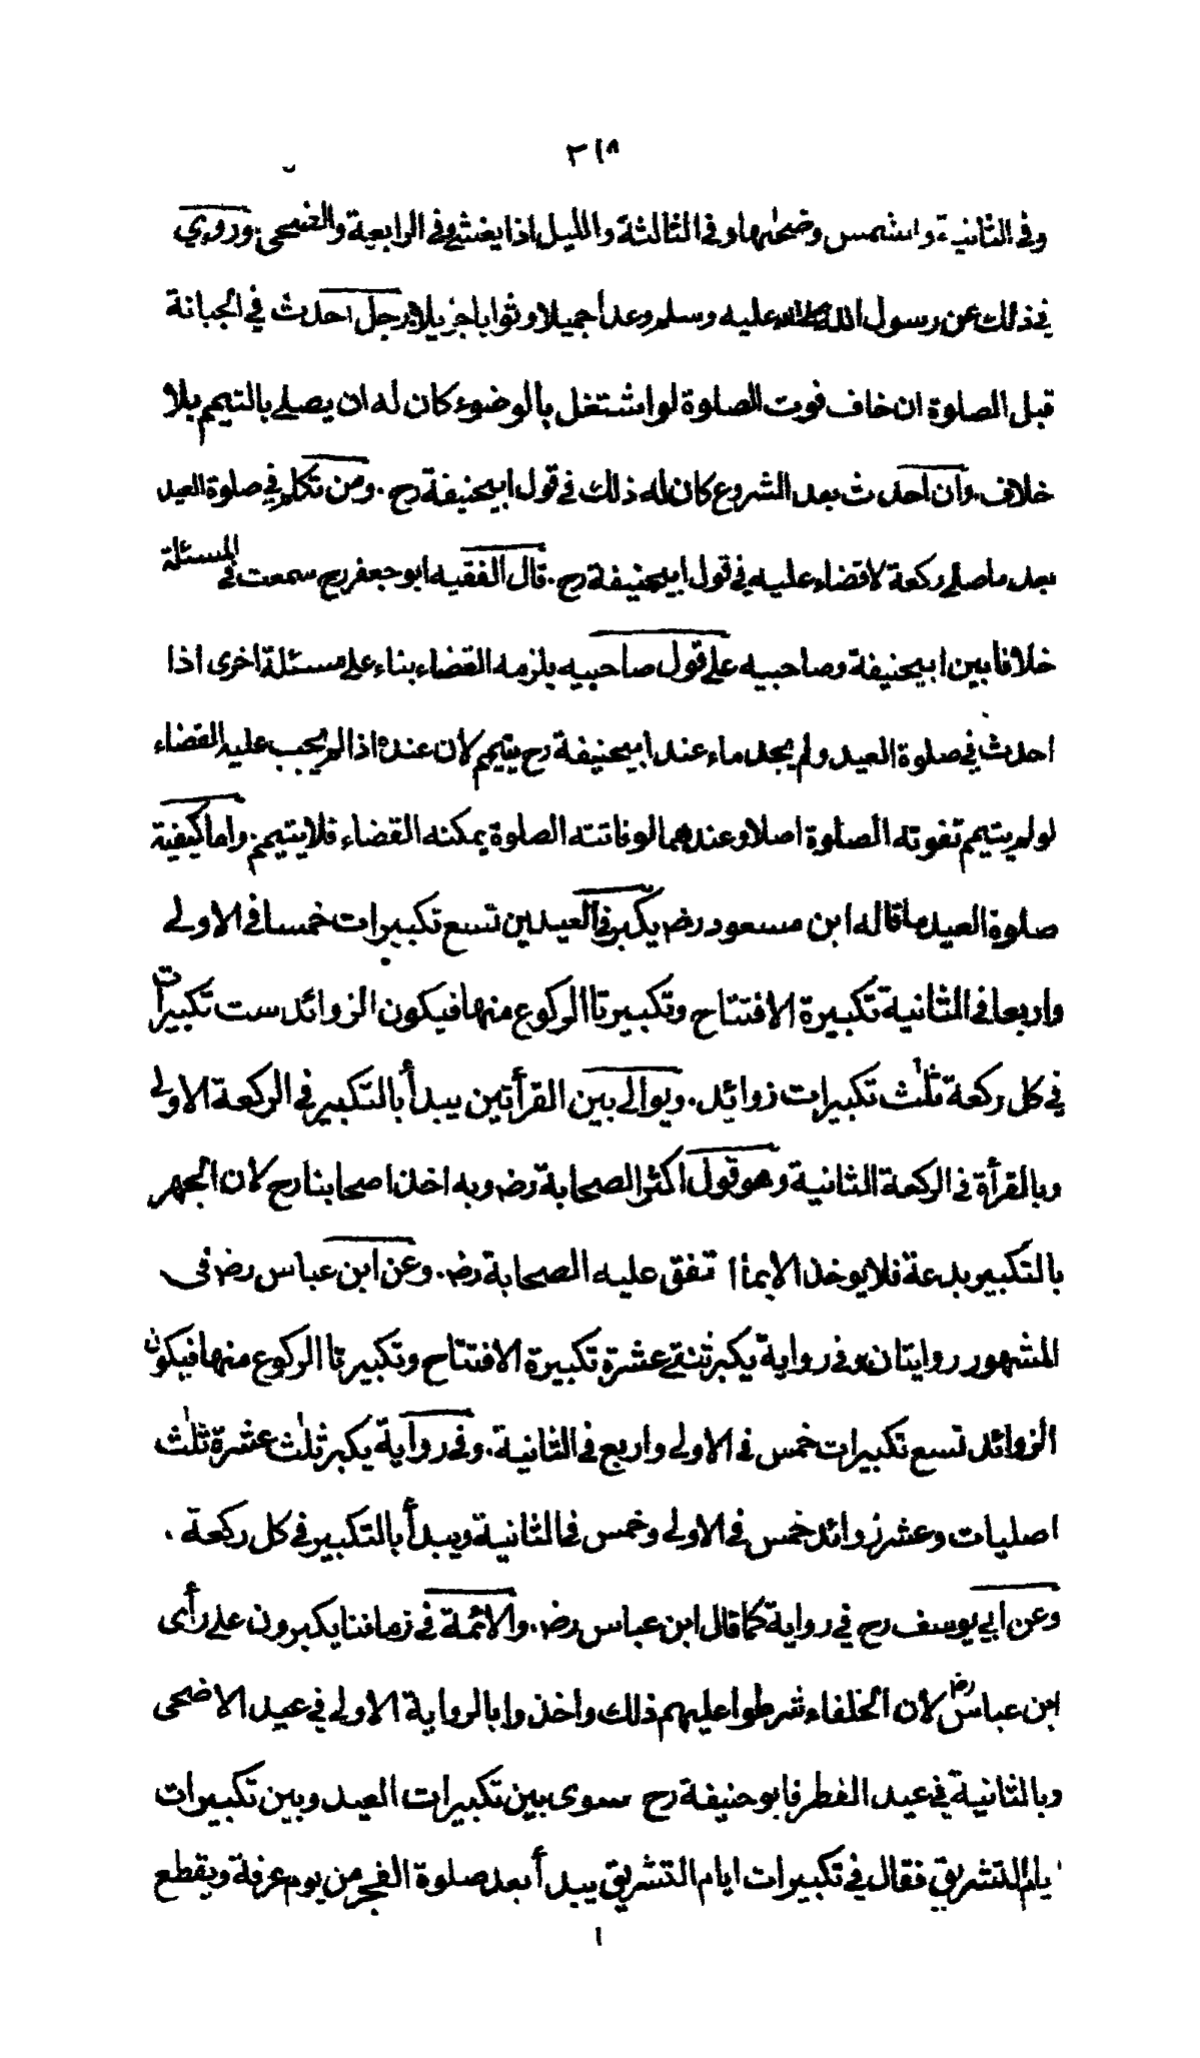 ٣١٨
وفى الثانية والشمس وضحٰها وفى الثالثة والليل اذا يغشٰى وفى الرابعة والضحى. وروي
في ذلك عن رسول الله صلى الله عليه وسلم وعداً جميلا وثوابا جزيلا. رجل احدث في الجبانة
قبل الصلوة ان خاف فوت الصلوة لو اشتغل بالوضوء كان له ان يصلے بالتيمم بلا
خلاف. وان احدث بعد الشروع كان له ذلك في قول ابيحنيفة رح. ومن تكلم في صلوة العيد
بعد ما صلے ركعة لا قضاء عليه في قول ابيحنيفة رح. قال الفقيه ابو جعفر رح سمعت في المسئلة
خلافا بين ابيحنيفة وصاحبيه علے قول صاحبيه يلزمه القضاء بناء علے مسئلة اخرى اذا
احدث في صلوة العيد ولم يجد ماء عند ابيحنيفة رح يتيمم لان عنده اذا لم يجب عليه القضاء
لو لم يتيمم تفوته الصلوة اصلا وعندهما لو فاتته الصلوة يمكنه القضاء فلا يتيمم. واما كيفية
صلوة العيد ما قاله ابن مسعود رض يكبر فى العيدين تسع تكبيرات خمسا فى الاولے
واربعا فى الثانية تكبيرة الافتتاح وتكبيرتا الركوع منها فيكون الزوائد ست تكبيرات
في كل ركعة ثلٰث تكبيرات زوائد. ويوالے بين القرأتين يبدأ بالتكبير فى الركعة الاولے
وبالقرأة في الركعة الثانية وهو قول اكثر الصحابة رض وبه اخذ اصحابنا رح لان الجهر
بالتكبير بدعة فلا يوخذ الا بما اتفق عليه الصحابة رض. وعن ابن عباس رض فى
المشهور روايتان. وفى رواية يكبر ثنتے عشرة تكبيرة الافتتاح وتكبيرتا الركوع منها فيكون
الزوائد تسع تكبيرات خمس فى الاولے واربع فى الثانية. وفى رواية يكبر ثلٰث عشرة ثلٰث
اصليات وعشر زوائد خمس في الاولے وخمس فى الثانية ويبدأ بالتكبير في كل ركعة.
وعن ابي يوسف رح في رواية كما قال ابن عباس رض. والائمة في زماننا يكبرون علے رأى
ابن عباس رض لان الخلفاء شرطوا عليهم ذلك واخذوا بالرواية الاولے في عيد الاضحى
وبالثانية في عيد الفطر فابو حنيفة رح سوى بين تكبيرات العيد وبين تكبيرات
ايام التشريق فقال في تكبيرات ايام التشريق يبدأ بعد صلوة الفجر من يوم عرفة ويقطع